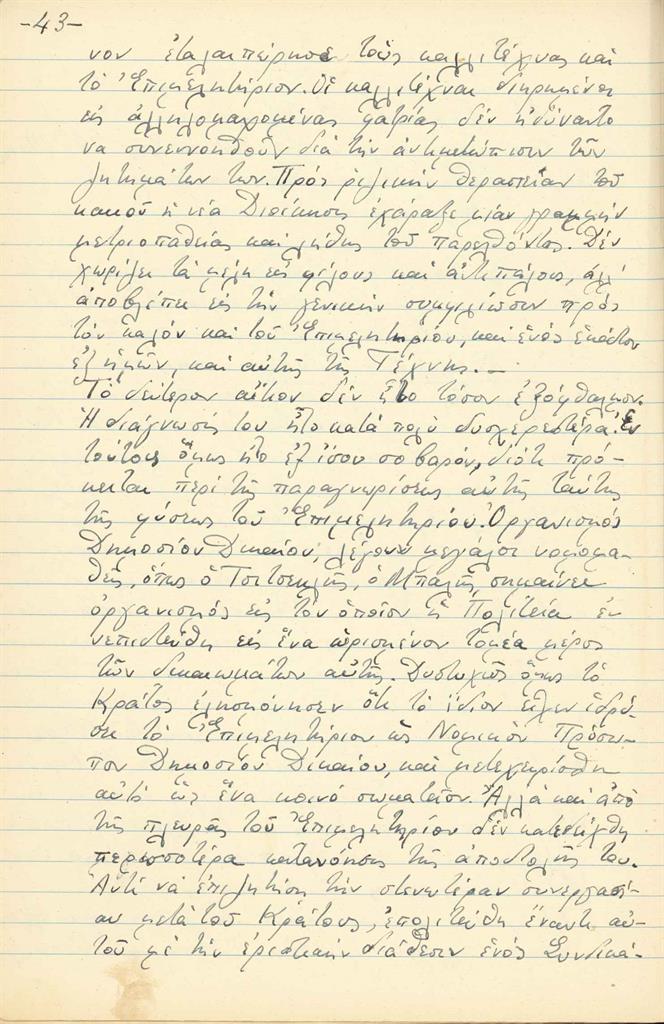 -43-
νον ἐταλαιπώρησε τοὺς καλλιτέχνας καὶ
τὸ Ἐπιμελητήριον. Οἱ καλλιτέχναι διηρημένοι
εἰς ἀλληλομαχομένας φατρίας δὲν ἠδύναντο
νὰ συνεννοηθοῦν διὰ τὴν ἀντιμετώπισιν τῶν
ζητημάτων των. Πρὸς ριζικὴν θεραπείαν τοῦ
κακοῦ ἡ νέα Διοίκησις ἐχάραξε μίαν γραμμὴν
μετριοπαθείας καὶ λήθης τοῦ παρελθόντος. Δὲν
χωρίζει τὰ μέλη εἰς φίλους καὶ ἀντιπάλους, ἀλλ'
ἀποβλέπει εἰς τὴν γενικὴν συμφιλίωσιν πρὸς
τὸν καλὸν καὶ τοῦ Ἐπιμελητηρίου, καὶ ἑνὸς ἑκάστου
ἐξ ἡμῶν, καὶ αὐτῆς τῆς Τέχνης.—
Τὸ δεύτερον αἴτιον δὲν ἦτο τόσον ἐξόφθαλμον.
Ἡ διάγνωσίς του ἦτο κατὰ πολὺ δυσχερεστέρα. Ἐν
τούτοις ὅμως ἦτο ἐξ ἴσου σοβαρόν, διότι πρό-
κειται περὶ τῆς παραγνωρίσεως αὐτῆς ταύτης
τῆς φύσεως τοῦ Ἐπιμελητηρίου. Ὀργανισμὸς
Δημοσίου Δικαίου, λέγουν μεγάλοι νομομα-
θεῖς, ὅπως ὁ Τσιτσεκλῆς, ὁ Μπαλῆς, σημαίνει
ὀργανισμὸς εἰς τὸν ὁποῖον ἡ Πολιτεία ἐν
νεπιστεύθη εἰς ἕνα ὡρισμένον τομέα μέρος
τῶν δικαιωμάτων αὐτῆς. Δυστυχῶς ὅμως τὸ
Κράτος ἐλησμόνησεν ὅτι τὸ ἴδιον εἶχεν ἱδρύ-
σει τὸ Ἐπιμελητήριον ὡς Νομικὸν Πρόσω-
πον Δημοσίου Δικαίου, καὶ μετεχειρίσθη
αὐτὸ ὡς ἕνα κοινὸ σωματεῖον. Ἀλλὰ καὶ ἀπὸ
τῆς πλευρᾶς τοῦ Ἐπιμελητηρίου δὲν κατεδείχθη
περισσοτέρα κατανόησις τῆς ἀποστολῆς του.
Ἀντὶ νὰ ἐπιζητήσῃ τὴν στενωτέραν συνεργασί-
αν μετὰ τοῦ Κράτους, ἐπολιτεύθη ἔναντι αὐ-
τοῦ μὲ τὴν ἐριστικὴν διάθεσιν ἑνὸς Συνδικά-